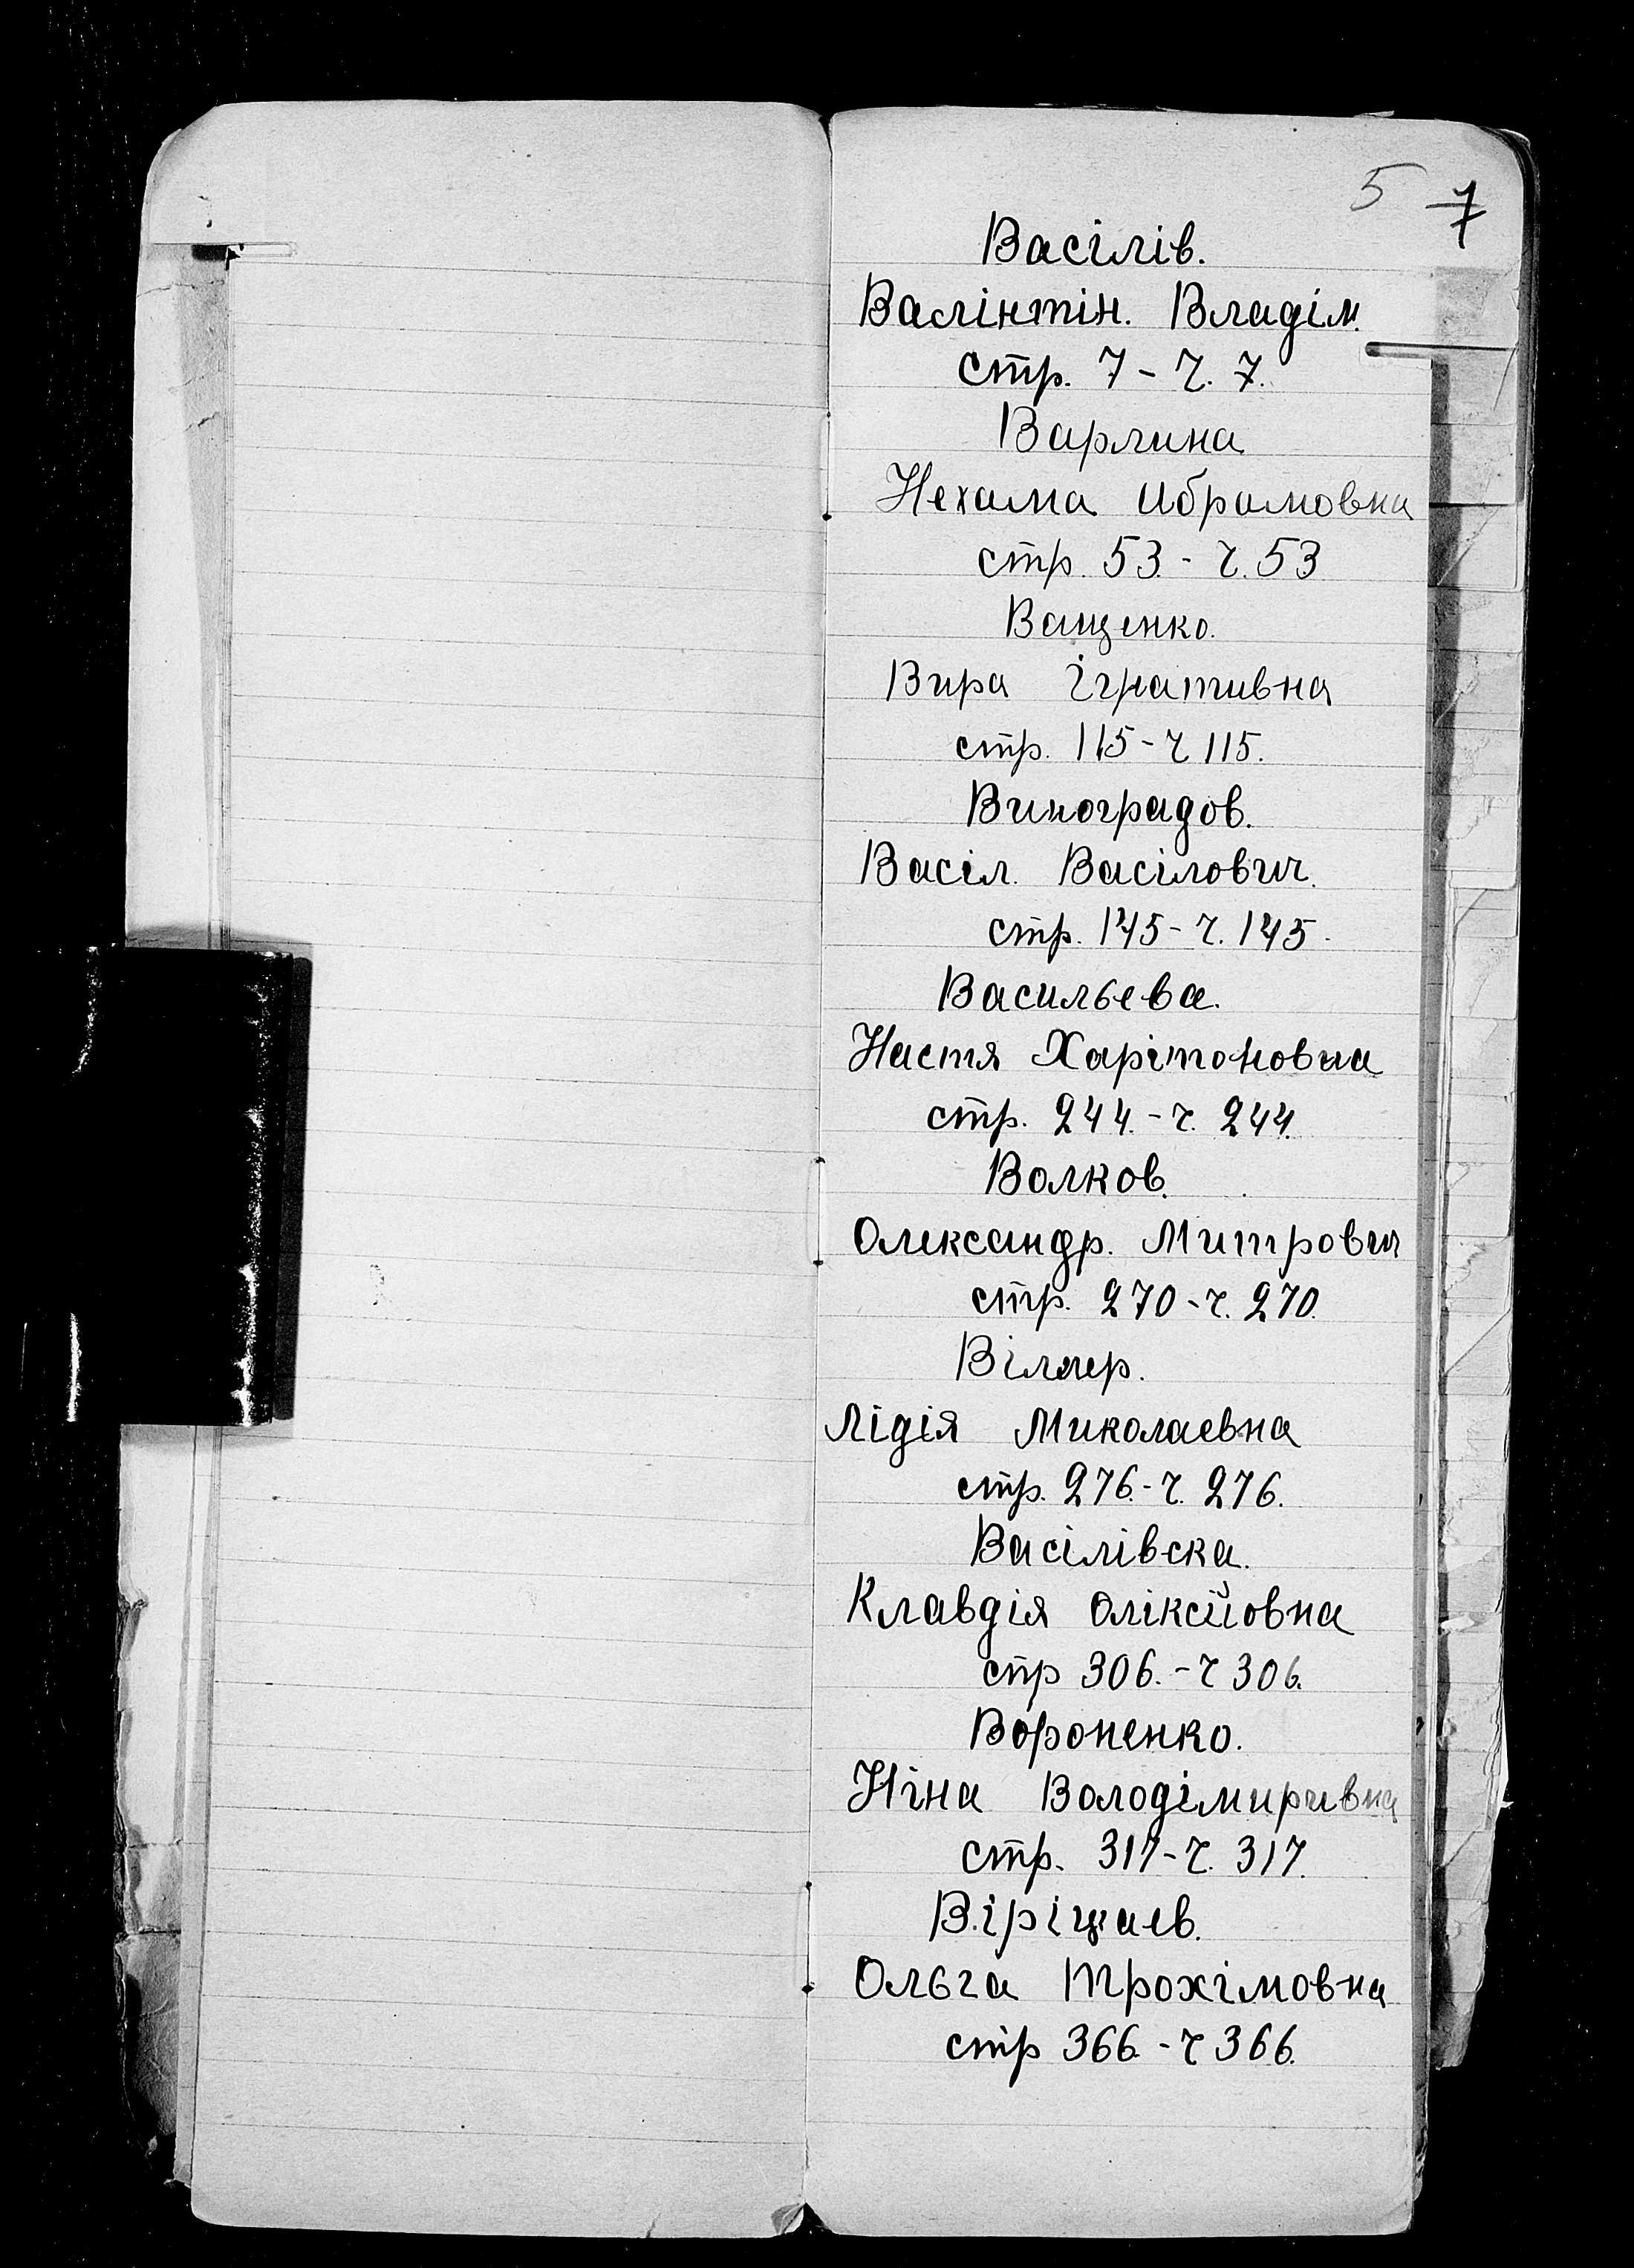 5 7
Васілів.
Валінтін. Владім.
стр. 7 - ч. 7.
Варлина
Нехама Ибрамовна
стр. 53. - ч. 53
Ващенко.
Вира Ігративна
стр. 115 - ч 115.
Виноградов.
Васіл. Васілович.
стр. 145 - ч. 145.
Васильева.
Настя Харітоновна
стр. 244. - ч. 244.
Волков.
Олександр. Митрович
стр. 270 - ч. 270.
Лідія Миколаевна
стр. 276. - ч. 276.
Васілівска.
Клавдія Оліксійовна
стр 306. - ч 306.
Вороненко.
Ніна Володімиривна
стр. 317 - ч. 317.
Ольга Трохімовна
стр 366. - ч 366.